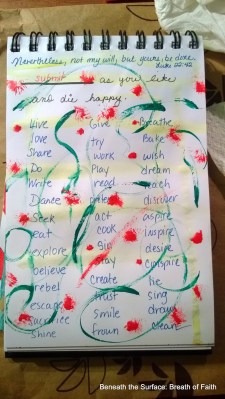 Nevertheless, not my will, but yours, be done.
Luke 22:42
submit as you like
and die happy.
Live Give Breathe
love try Bake
Share work wish
Do Play dream
Write read reach
Dance discover
Seek act aspire
eat cook inspire
explore desire
believe stay conspire
rebel create be
escape trust sing
Sacrifice smile draw
Shine frown clean
Beneath the Surface: Breath of Faith